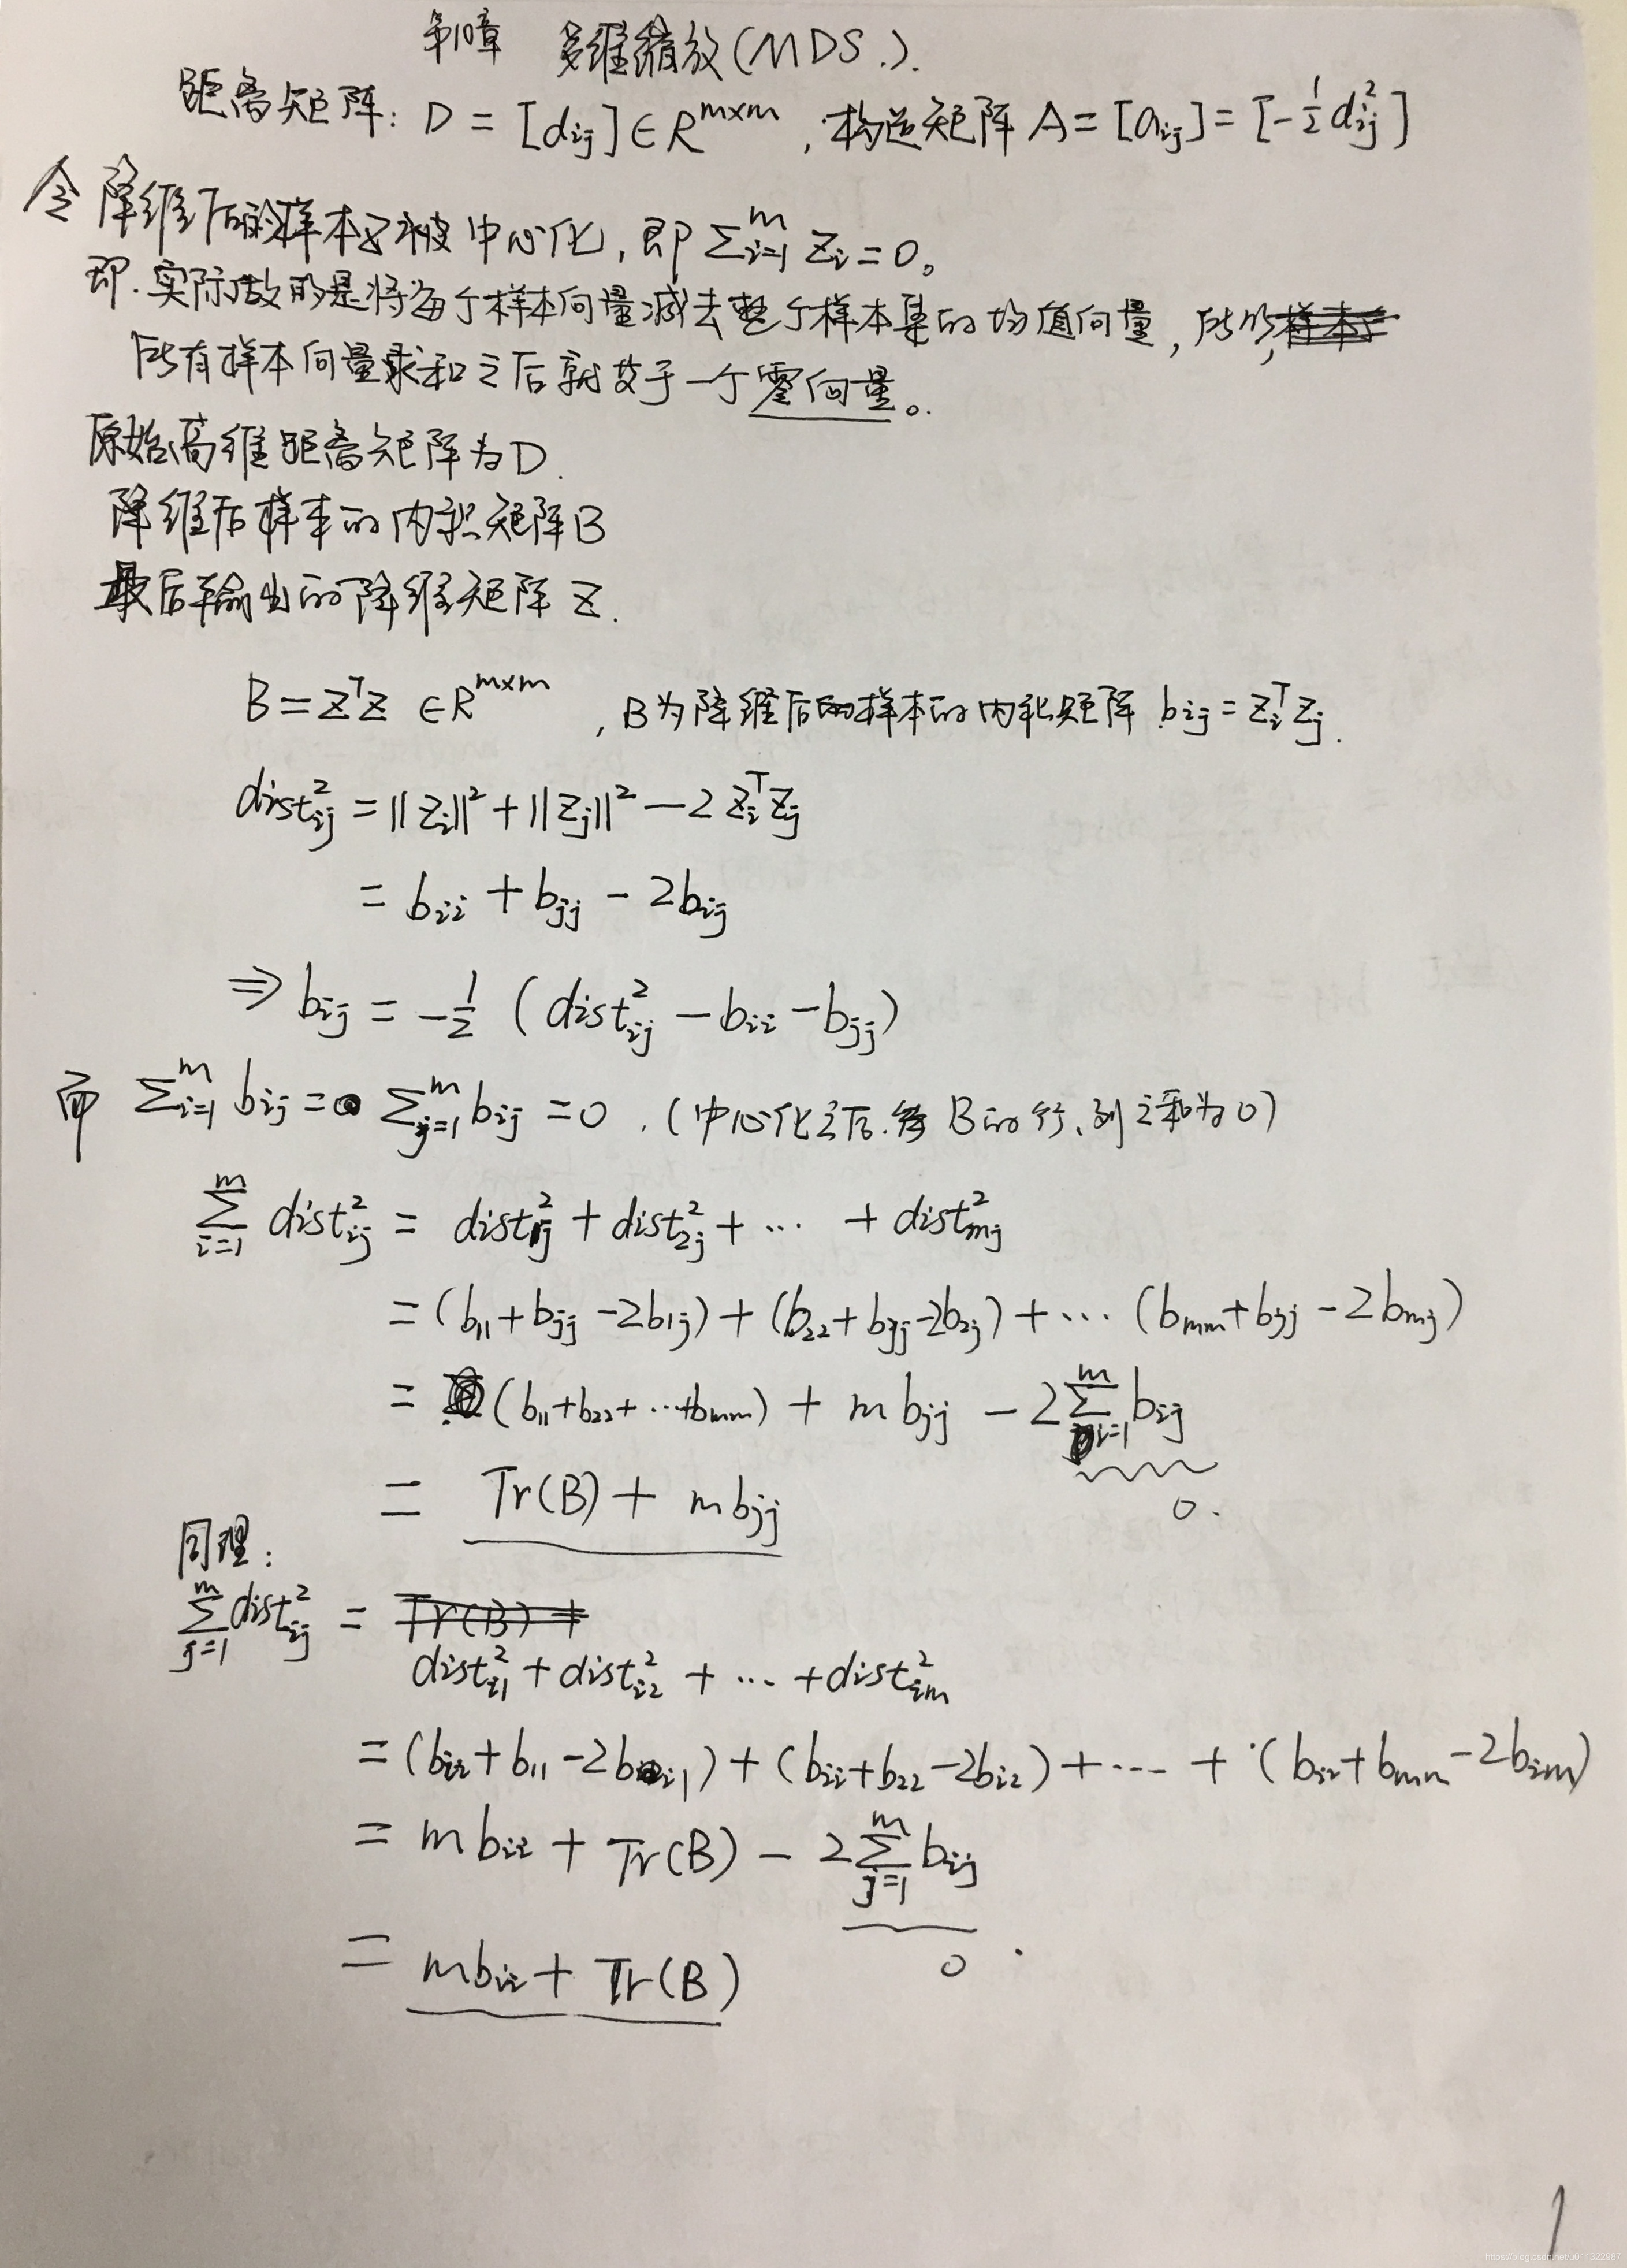 第10章 多维缩放(MDS.).
距离矩阵: D = [dij] ∈ R^{m×m}, 构造矩阵 A = [aij] = [-1/2 d²ij]
令降维后的样本Z被中心化, 即 Σ_{i=1}^{m} Zi = 0。
即.实际做的是将每个样本向量减去整个样本集的均值向量, 所以,
所有样本向量求和之后就等于一个零向量。
原始高维距离矩阵为D.
降维后样本的内积矩阵B
最后输出的降维矩阵Z.
B = Z^T Z ∈ R^{m×m}, B为降维后的样本的内积矩阵 bij = Zi^T Zj.
dist²ij = ||Zi||² + ||Zj||² - 2Zi^T Zj
= bii + bjj - 2bij
⇒ bij = -1/2 (dist²ij - bii - bjj)
而 Σ_{i=1}^{m} bij = Σ_{j=1}^{m} bij = 0. (中心化之后. B的行、列之和为0)
Σ_{i=1}^{m} dist²ij = dist²1j + dist²2j + ... + dist²mj
= (b11 + bjj - 2b1j) + (b22 + bjj - 2b2j) + ... (bmm + bjj - 2bmj)
= (b11 + b22 + ... + bmm) + m bjj - 2Σ_{i=1}^{m} bij
0.
= Tr(B) + m bjj
同理:
Σ_{j=1}^{m} dist²ij = Tr(B) +
dist²i1 + dist²i2 + ... + dist²im
= (bii + b11 - 2bi1) + (bii + b22 - 2bi2) + ... + (bii + bmm - 2bim)
= m bii + Tr(B) - 2Σ_{j=1}^{m} bij
0.
= mbii + Tr(B)
1
https://blog.csdn.net/u011322987